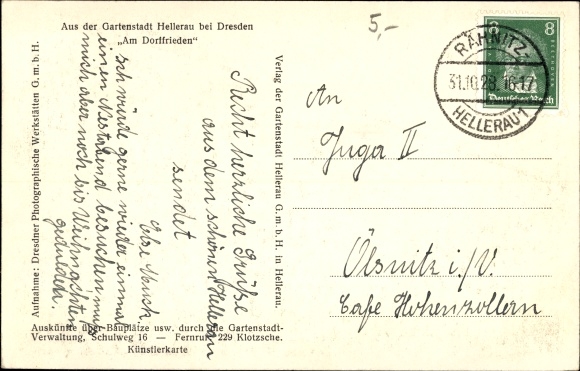 Aus der Gartenstadt Hellerau bei Dresden
„Am Dorffrieden“
5,-
8 8
Deutsches Reich
RÄHNITZ-
31.10.28.16-17
HELLERAU 1
Aufnahme: Dresdner Photographische Werkstätten G. m. b. H.
Verlag der Gartenstadt Hellerau G. m. b. H. in Hellerau.
Recht herzliche Grüße
aus dem schönen Hellerau
sendet
Else
Ich würde gerne wieder einmal
einen besuchen, muß
mich aber noch bis Weihnachten
gedulden.
An
Juga II
Ölsnitz i./V.
Cafe Hohenzollern
Auskünfte über Bauplätze usw. durch die Gartenstadt-
Verwaltung, Schulweg 16 — Fernruf: 229 Klotzsche.
Künstlerkarte